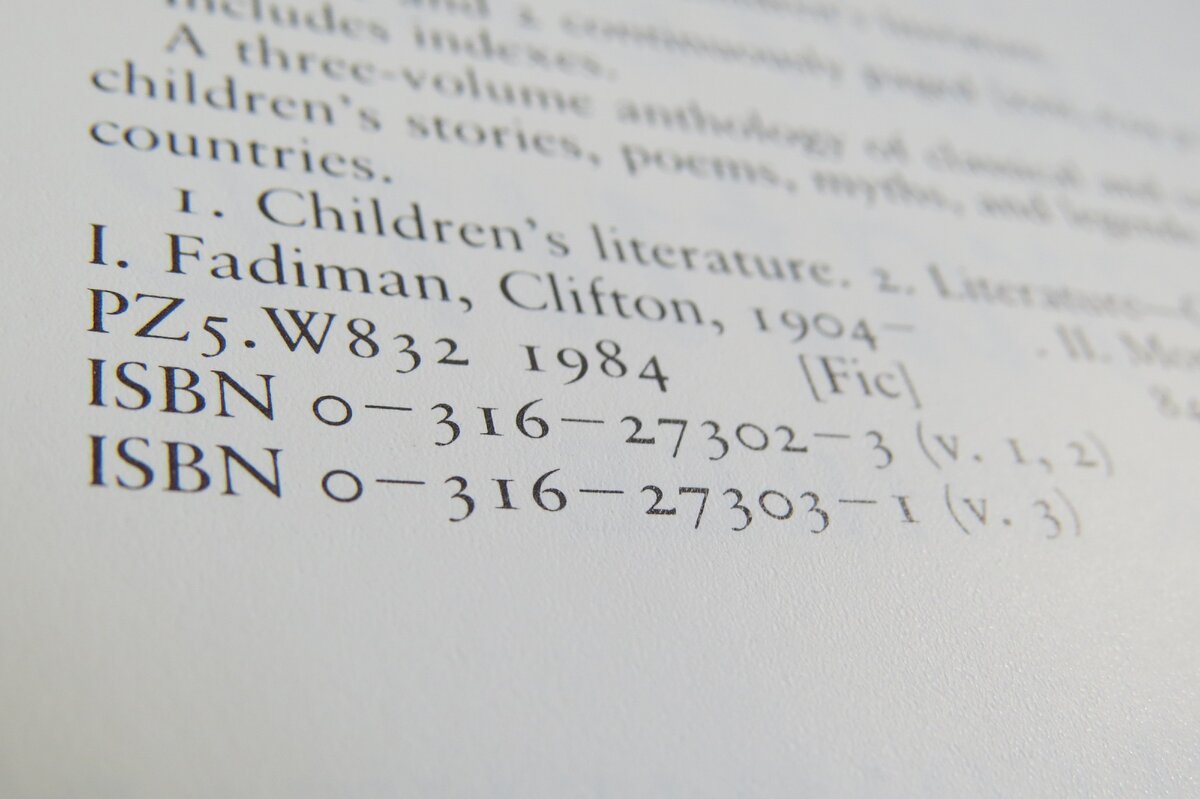 and 2 continuously paged
Includes indexes.
A three-volume anthology of classical and
children's stories, poems, myths, and legends
countries.
1. Children's literature. 2. Literature—
I. Fadiman, Clifton, 1904– . II.
PZ5.W832 1984 [Fic]
ISBN 0–316–27302–3 (v. 1, 2)
ISBN 0–316–27303–1 (v. 3)